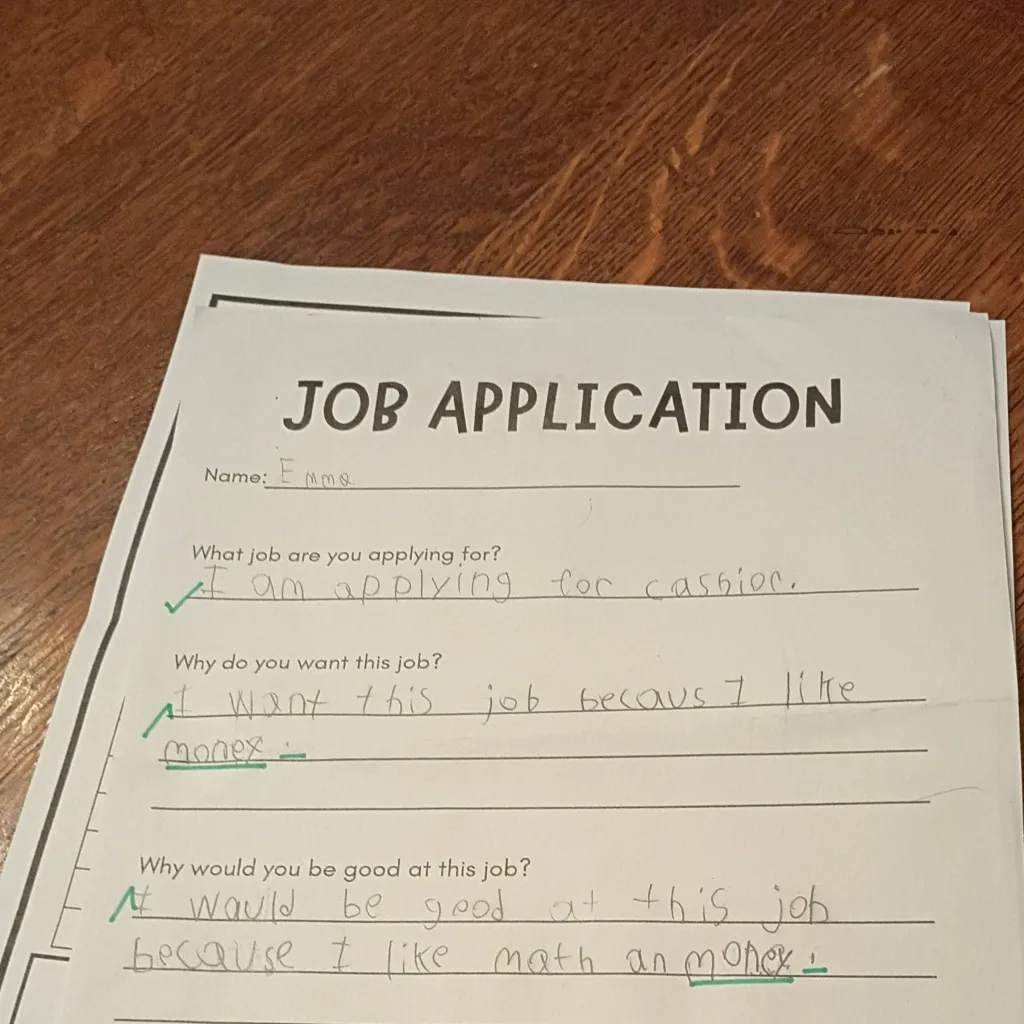 JOB APPLICATION
Name: Emma
What job are you applying for?
I am applying for cashior.
Why do you want this job?
I want this job becaus I like
monex.
Why would you be good at this job?
I would be good at this job
because I like math an monex.